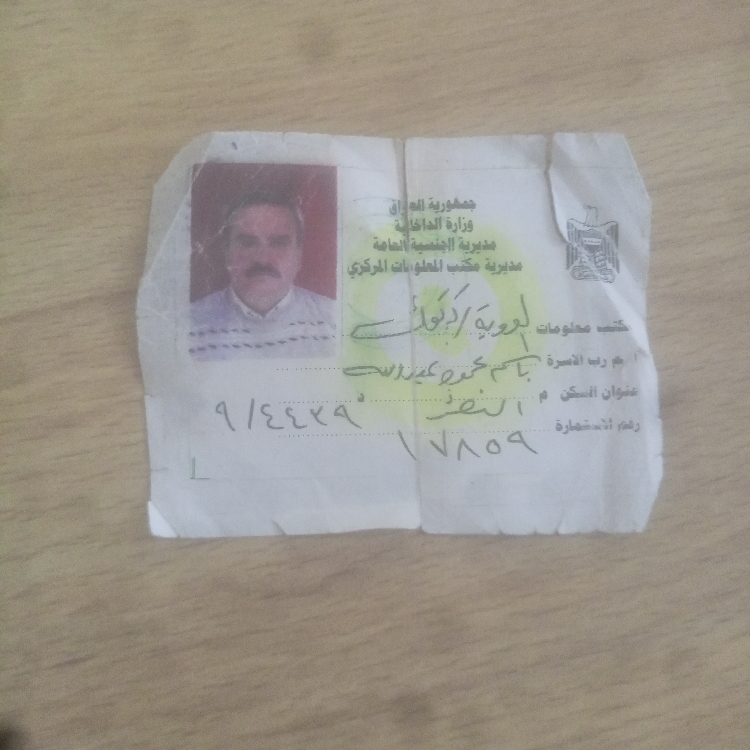 جمهورية العراق
وزارة الداخلية
مديرية الجنسية العامة
مديرية مكتب المعلومات المركزي
مكتب معلومات العروبة / كركوك
اسم رب الاسرة باسم محمود عبدالله
عنوان السكن م النصر د ٩/٤٤٣٩
رقم الاستمارة ١٧٨٥٩